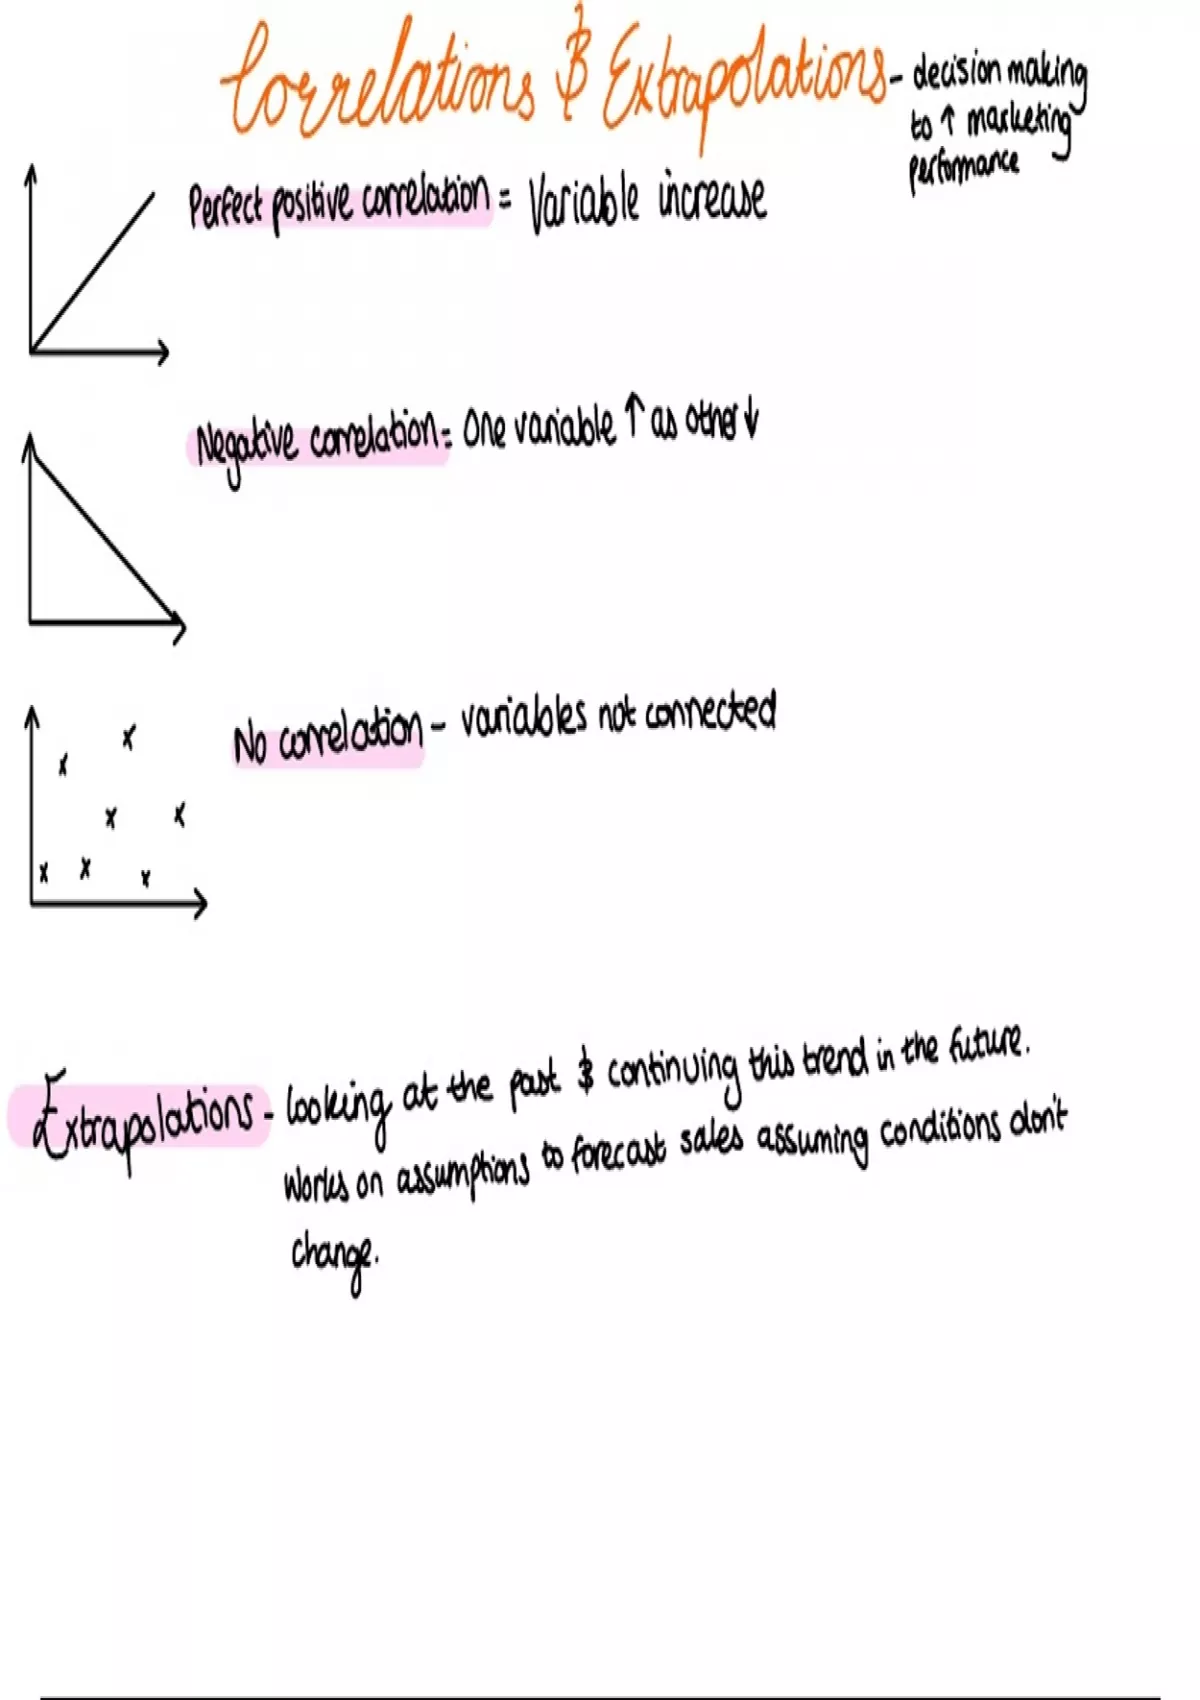 Correlations & Extrapolations - decision making
to ↑ marketing
performance
Perfect positive correlation = Variable increase
Negative correlation = One variable ↑ as other ↓
No correlation - variables not connected
Extrapolations - looking at the past & continuing this trend in the future.
Works on assumptions to forecast sales assuming conditions don't
change.